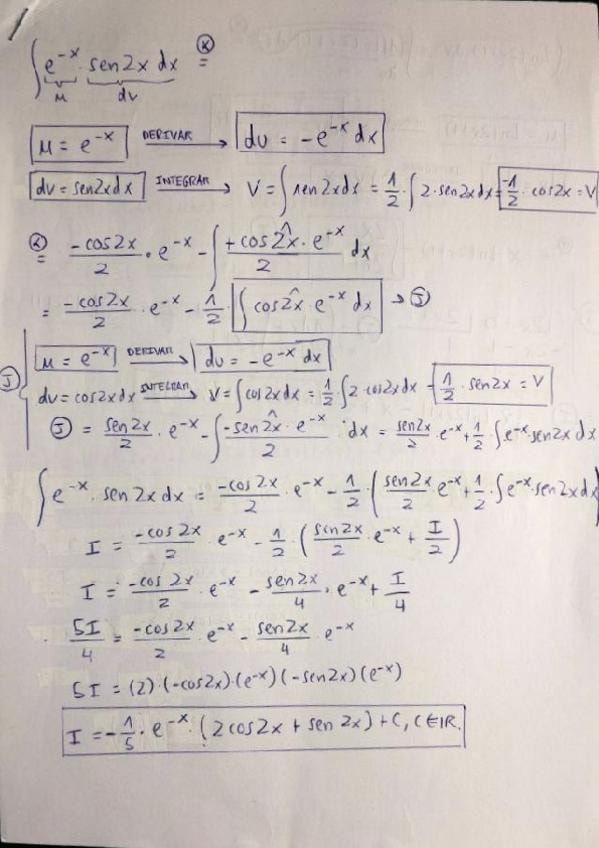 ∫ e^-x · sen2x dx (*)=
u dv
u = e^-x DERIVAR → du = -e^-x dx
dv = sen2xdx INTEGRAR → V = ∫ sen2xdx = 1/2 · ∫ 2·sen2xdx = -1/2 · cos2x = V
(*)= -cos2x/2 · e^-x - ∫ +cos2x · e^-x/2 dx
= -cos2x/2 · e^-x - 1/2 · ∫ cos2x · e^-x dx → J
J { u = e^-x DERIVAR → du = -e^-x dx
dv = cos2xdx INTEGRAR → V = ∫ cos2xdx = 1/2 · ∫ 2·cos2xdx = 1/2 · sen2x = V
J = sen2x/2 · e^-x - ∫ -sen2x · e^-x/2 · dx = sen2x/2 · e^-x + 1/2 · ∫ e^-x·sen2xdx
∫ e^-x · sen2xdx = -cos2x/2 · e^-x - 1/2 · (sen2x/2 e^-x + 1/2 · ∫ e^-x·sen2xdx)
I = -cos2x/2 · e^-x - 1/2 · (sen2x/2 · e^-x + I/2)
I = -cos2x/2 · e^-x - sen2x/4 · e^-x + I/4
5I/4 = -cos2x/2 · e^-x - sen2x/4 · e^-x
5I = (2)·(-cos2x)·(e^-x)(-sen2x)(e^-x)
I = -1/5 · e^-x · (2cos2x + sen2x) + C, C∈IR.